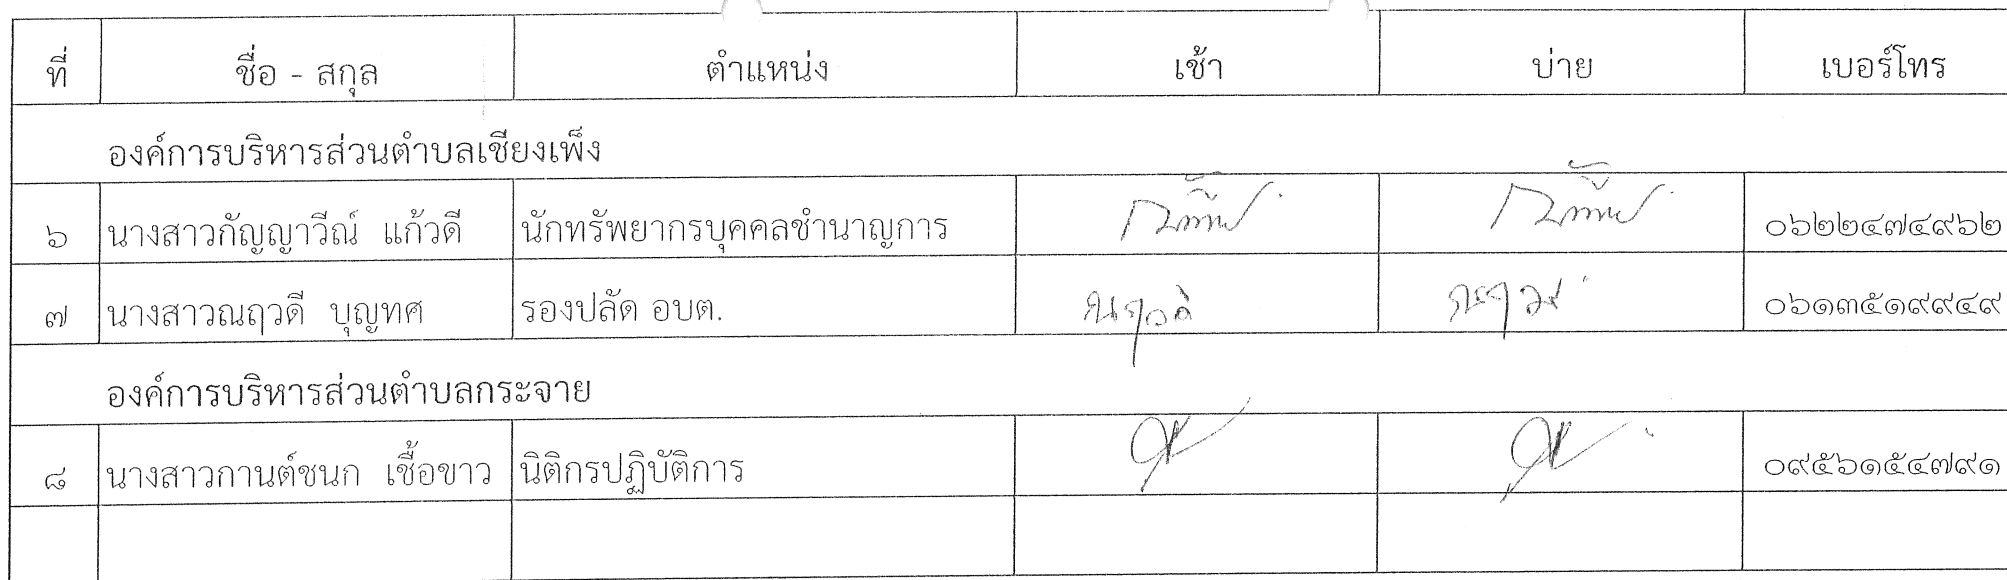 ที่ ชื่อ - สกุล ตำแหน่ง เช้า บ่าย เบอร์โทร
องค์การบริหารส่วนตำบลเชียงเพ็ง
๖ นางสาวกัญญาวีณ์ แก้วดี นักทรัพยากรบุคคลชำนาญการ ๐๖๒๒๔๗๔๙๖๒
๗ นางสาวณฤวดี บุญทศ รองปลัด อบต. ณฤวดี ๐๖๑๓๕๑๙๙๔๙
องค์การบริหารส่วนตำบลกระจาย
๘ นางสาวกานต์ชนก เชื้อขาว นิติกรปฏิบัติการ ๐๙๕๖๑๕๔๗๙๑